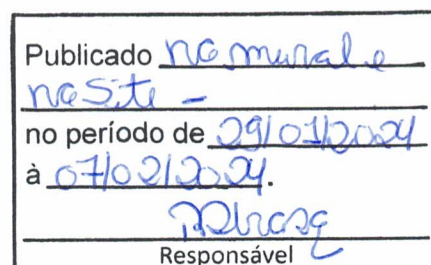 Publicado no mural e
no site -
no período de 29/01/2024
à 07/02/2024.
Responsável